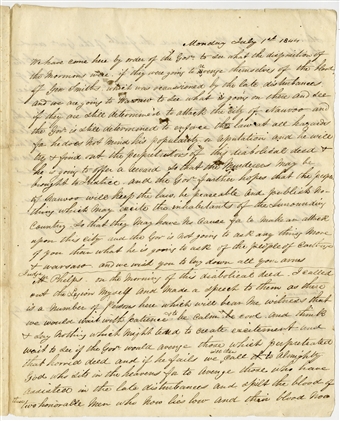 Monday July 1st 1844
We have come here by order of the Gov. to see what the disposition of
the Mormons were if they were going to avenge themselves of the blood
of Gen Smiths which was occasioned by the late disturbances
and we are going to Warsaw to see what is going on there and see
if they are still determined to attack the City of Nauvoo and
the Gov is still determined to enforce the law at all hazards
for he does not mind his popularity or reputation and he will
try & find out the perpetrators of this diabolical deed &
he is going to offer a reward so that the Murderers may be
brought to Justice and the Gov. farther hopes that the people
of Nauvoo will keep the law, be peaceable and publish No-
thing which May excite the inhabitants of the Surrounding
Country so that they May have No Cause for to make an attack
upon this City and the Gov is not going to ask any thing More
of you than what he is going to ask of the people of Carthage
& Warsaw and will you to lay down all your arms
Judge Phelps. on the Morning of this diabolical deed I called
out the Legion Myself and Made a speech to them as there
is a Number of persons here which will bear Me witness that
we would wait with patience & be calm to the end and think &
& say Nothing which Might tend to create excitement and
wait to see if the Gov. would avenge those which perpetrated
that horrid deed and if he fails we shall call on Almighty
God who sits in the heavens for to Avenge those who have
assisted in the late disturbances and spilt the blood of
two honorable Men who Now lies low and their blood Now